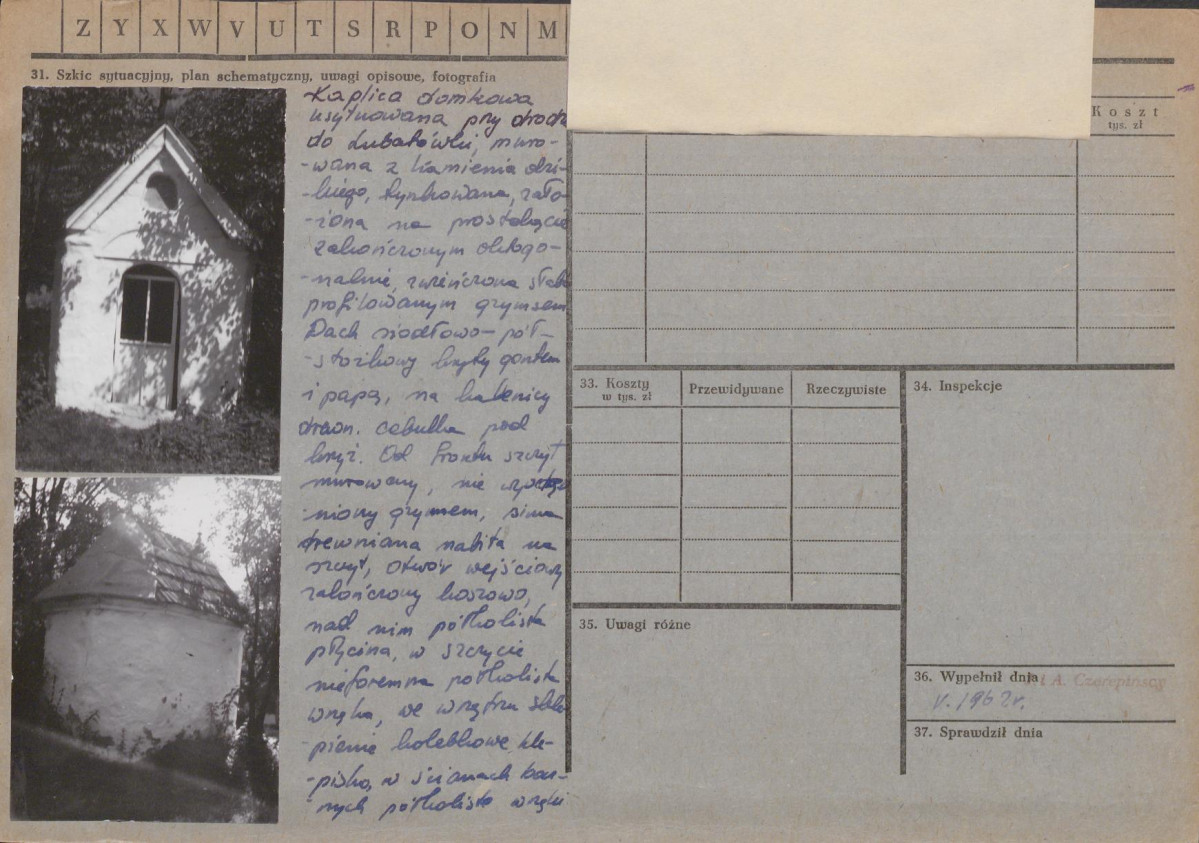 Z Y X W V U T S R P O N M
31. Szkic sytuacyjny, plan schematyczny, uwagi opisowe, fotografia
Kaplica domkowa
usytuowana przy drodz
do Lubatówki, muro-
-wana z kamienia dzi-
-kiego, tynkowana, zało-
-żona na prostokącie
zakończonym oktogo-
-nalnie, zwieńczona słabo
profilowanym gzymsem
Dach siodłowo-pół-
-stożkowy kryty gontem
i papą, na kalenicy
drewn. cebulka pod
krzyż. Od frontu szczyt
murowany, nie
-niony gzymsem, sima
drewniana nabita na
szczyt, otwór wejściowy
zakończony koszowo,
nad nim półkolista
płycina, w szczycie
nieforemna półkolista
wnęka, we wnętrzu skle-
-pienie kolebkowe, kle-
-pisko, w ścianach bocz-
-nych półkoliste wnęki
Koszt
tys. zł
33. Koszty
w tys. zł
Przewidywane
Rzeczywiste
34. Inspekcje
35. Uwagi różne
36. Wypełnił dnia
A. Czerepińscy
V. 1962r.
37. Sprawdził dnia